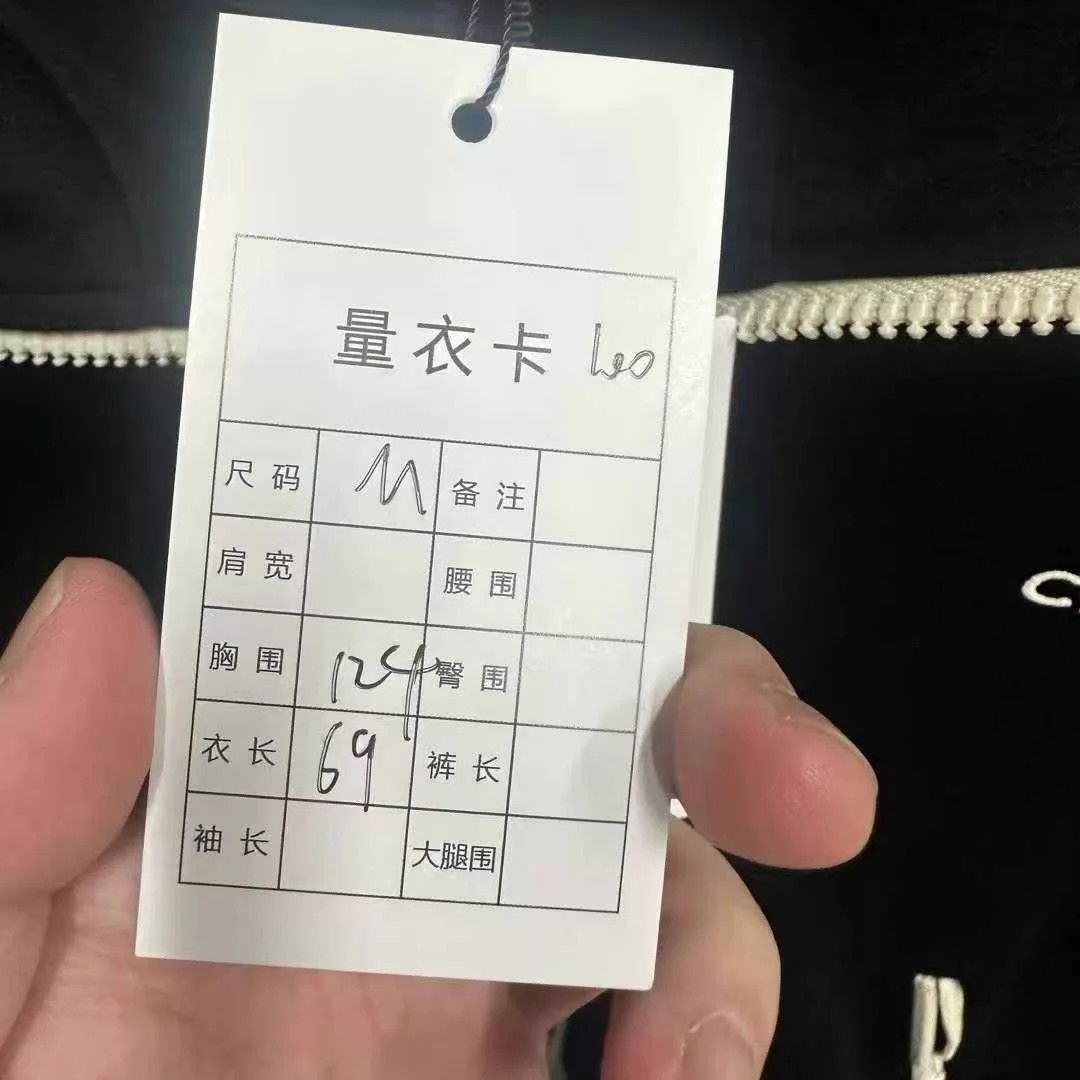 量衣卡 Leo
尺码 M 备注
肩宽 腰围
胸围 124 臀围
衣长 69 裤长
袖长 大腿围